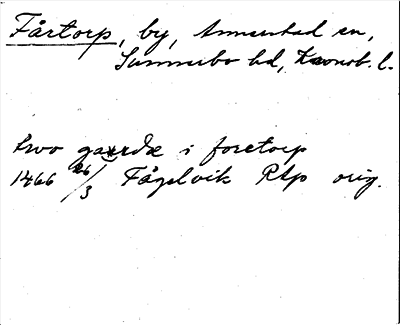 Fårtorp, by, Annerstad sn,
Sunnerbo hd, Kronob. l.
two gaardæ i foretorp
1466 26/3 Fågelvik Rtp orig.